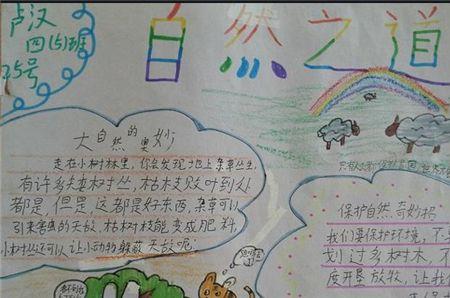 卢汉
四(5)班
25号
自然之道
大自然的奥妙
走在小树林里,你会发现地上杂草丛生,
有许多矮树丛,枯枝败叶到处
都是,但是,这都是好东西,杂草可以
引来害虫的天敌,枯树枝能变成肥料,
小树丛还可以让小动物躲蔽天敌呢!
保护自然,奇妙招
我们要保护环境,不
过多树木,不
度开垦放牧,让我们